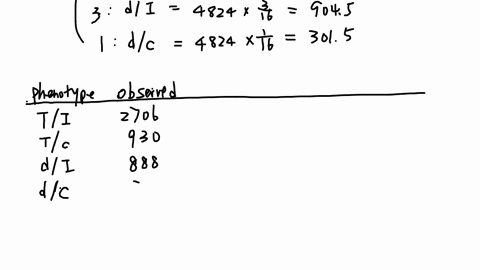 3 : d/I = 4824 × 3/16 = 904.5
1 : d/c = 4824 × 1/16 = 301.5
phenotype observed
T/I 2706
T/c 930
d/I 888
d/c